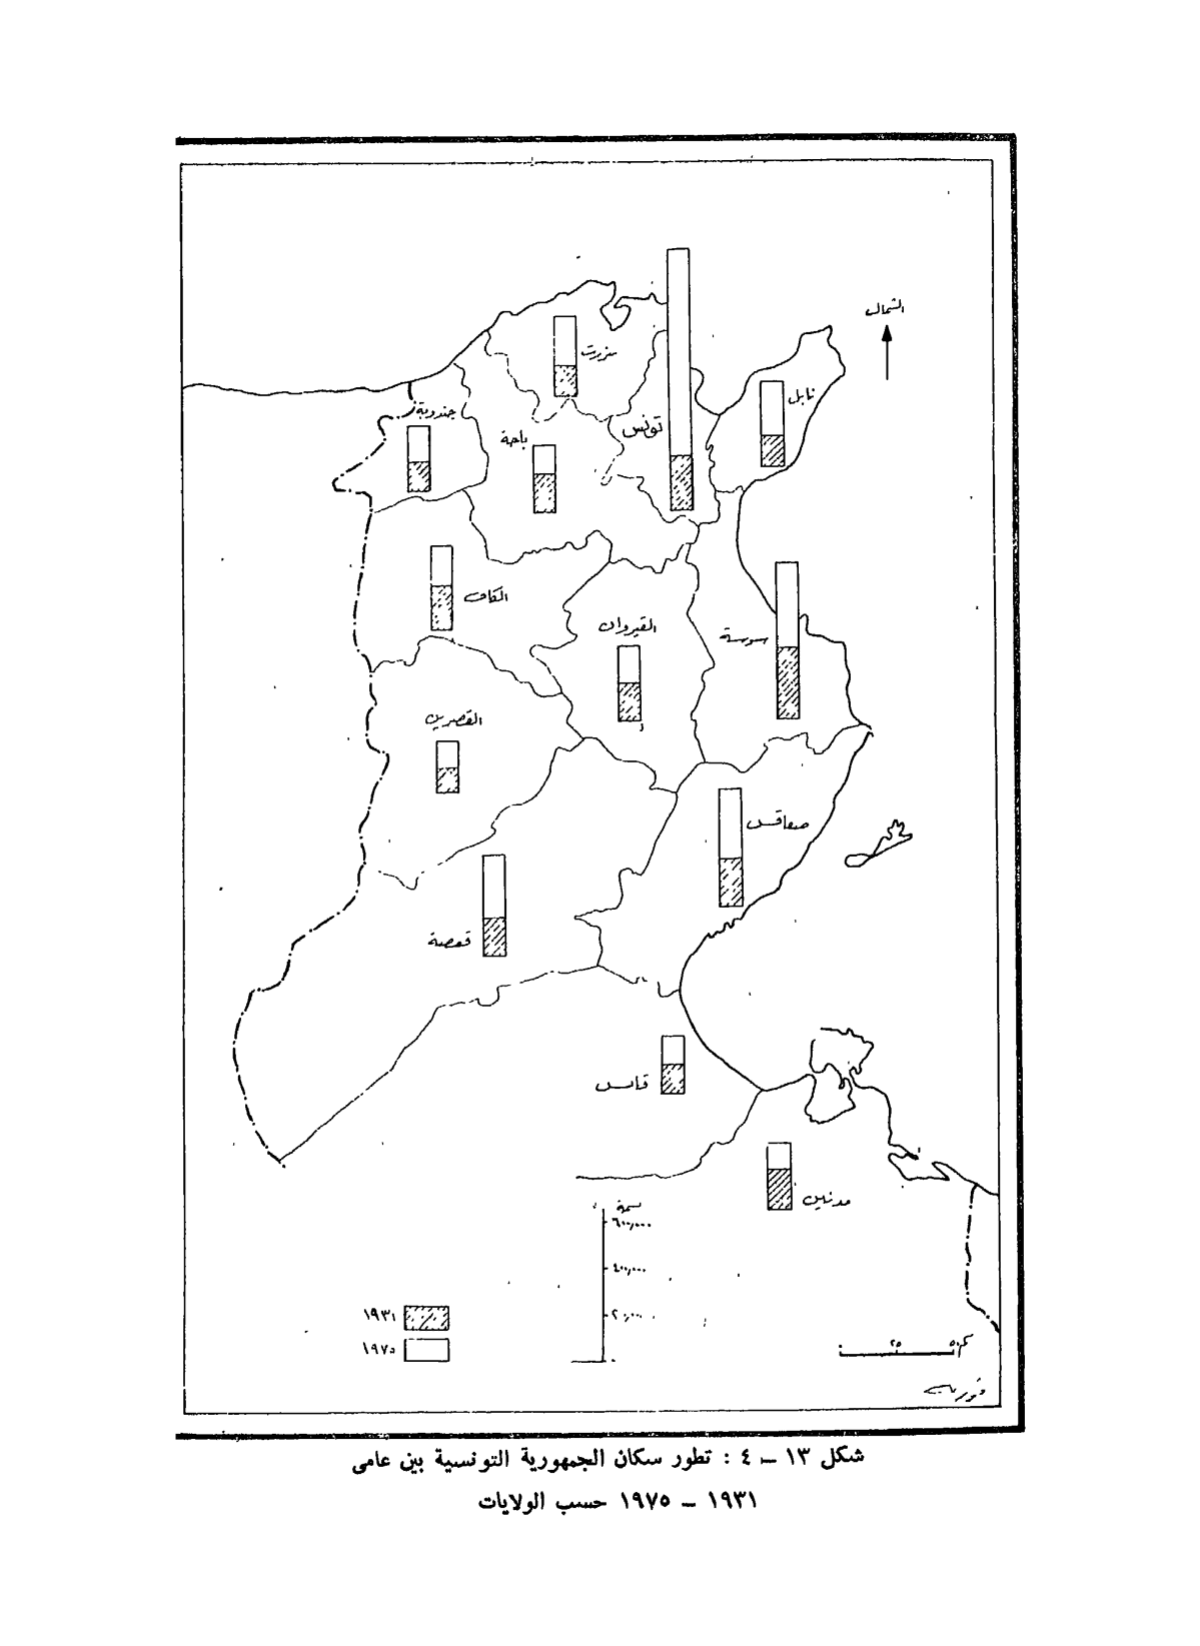 الشمال
بنزرت
نابل
جندوبة
تونس
باجة
الكاف
القيروان
سوسة
القصرين
صفاقس
قفصة
قابس
مدنين
نسمة
٦٠٠,٠٠٠
٤٠٠,٠٠٠
٢٠٠,٠٠٠
٠
١٩٣١
١٩٧٥
٠ ٢٥ ٥٠ كم
شكل ١٣ – ٤ : تطور سكان الجمهورية التونسية بين عامى
١٩٣١ – ١٩٧٥ حسب الولايات